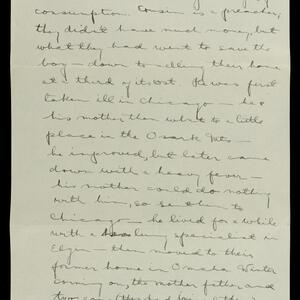 consumption. Cousin is a preacher,
they didn't have much money, but
what they had went to save the
boy – down to selling their home
at a third of its cost. He was first
taken ill in Chicago – he &
his mother then went to a little
place in the Osark Mts –
he improved, but later came
down with a heavy fever –
his mother could do nothing
with him, so
Chicago – he lived for a while
with a lung specialist in
Elgin – then moved to their
former home in Omaha Winter
coming on, the mother father and
two